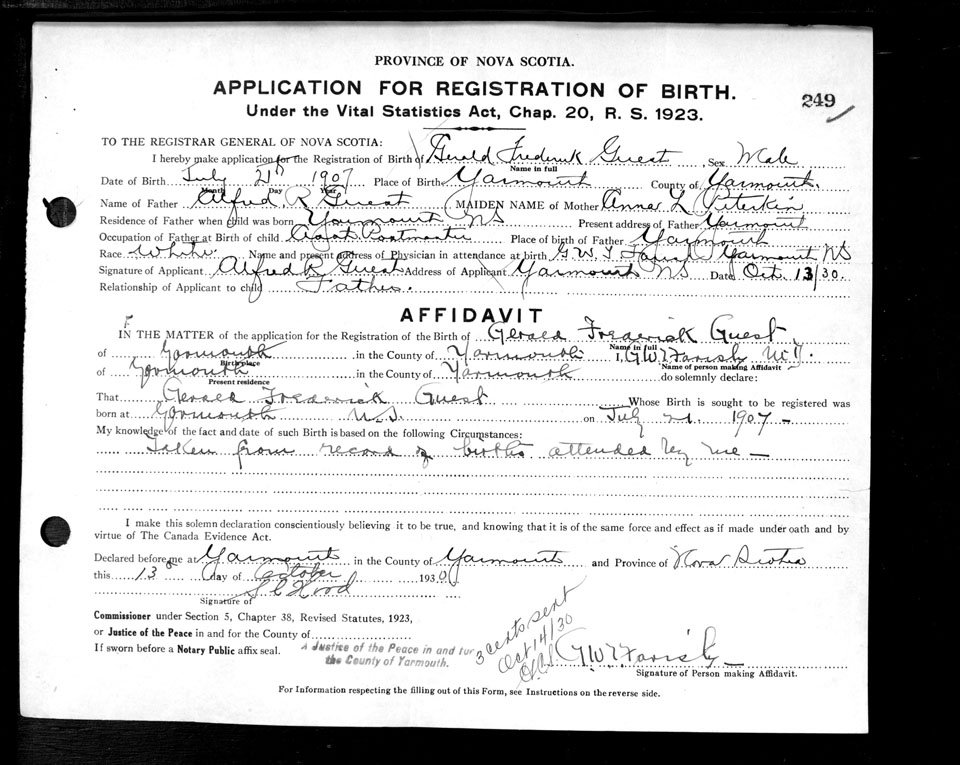 PROVINCE OF NOVA SCOTIA.
APPLICATION FOR REGISTRATION OF BIRTH.
249
Under the Vital Statistics Act, Chap. 20, R. S. 1923.
TO THE REGISTRAR GENERAL OF NOVA SCOTIA:
I hereby make application for the Registration of Birth of Gerald Frederick Guest Sex Male
Name in full
Date of Birth July 21 1907 Place of Birth Yarmouth County of Yarmouth.
Month Day Year
Name of Father Alfred R Guest MAIDEN NAME of Mother Anna L Peterkin
Residence of Father when child was born Yarmouth NS Present address of Father Yarmouth
Occupation of Father at Birth of child Asst Postmaster Place of birth of Father Yarmouth
Race White. Name and present address of Physician in attendance at birth G. W. T Farish Yarmouth NS
Signature of Applicant Alfred R Guest Address of Applicant Yarmouth NS Date Oct. 13/30.
Relationship of Applicant to child Father.
AFFIDAVIT
IN THE MATTER of the application for the Registration of the Birth of Gerald Frederick Guest
Name in full
of Yarmouth in the County of Yarmouth I, G W T Farish M.D.
Birthplace Name of person making Affidavit
of Yarmouth in the County of Yarmouth do solemnly declare:
Present residence
That Gerald Frederick Guest Whose Birth is sought to be registered was
born at Yarmouth N.S. on July 21. 1907-
My knowledge of the fact and date of such Birth is based on the following Circumstances:
Taken from record of births attended by me —
I make this solemn declaration conscientiously believing it to be true, and knowing that it is of the same force and effect as if made under oath and by
virtue of The Canada Evidence Act.
Declared before me at Yarmouth in the County of Yarmouth and Province of Nova Scotia
this 13 day of October 1930
Signature of
Commissioner under Section 5, Chapter 38, Revised Statutes, 1923,
or Justice of the Peace in and for the County of
If sworn before a Notary Public affix seal.
A Justice of the Peace in and for
the County of Yarmouth.
3 certs sent
Oct 14/30
G W T Farish —
Signature of Person making Affidavit.
For Information respecting the filling out of this Form, see Instructions on the reverse side.